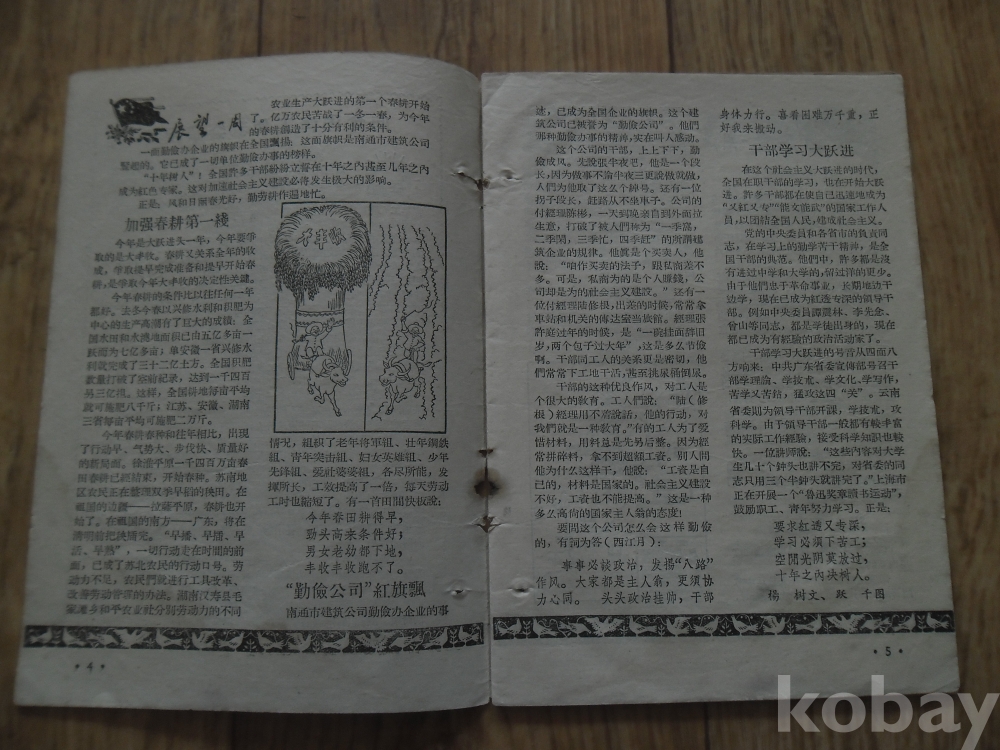 展望一周
农业生产大跃进的第一个春耕开始
了。亿万农民苦战了一冬一春，为今年
的春耕創造了十分有利的条件。
一面勤儉办企业的旗帜在全国飄揚：这面旗帜是南通市建筑公司
竪起的。它已成了一切单位勤儉办事的榜样。
“十年树人”！全国許多干部紛紛立誓在十年之內甚至几年之內
成为紅色专家。这对加速社会主义建設必将发生极大的影响。
正是：风和日丽春光好，勤劳耕作遍地忙。
加强春耕第一綫
今年是大跃进头一年，今年要爭
取的是大丰收。春耕又关系全年的收
成，爭取提早完成准备和提早开始春
耕，是爭取今年大丰收的决定性关鍵。
今年春耕的条件比以往任何一年
都好。去冬今春以兴修水利和积肥为
中心的生产高潮有了巨大的成績：全
国水田和水澆地面积已由五亿多亩一
跃而为七亿多亩；单安徽一省兴修水
利就完成了三十二亿土方。全国积肥
数量打破了空前紀录，达到一千四百
男三亿担。这样，全国耕地每亩平均
就可施肥八千斤；江苏、安徽、湖南
三省每亩平均可施肥二万斤。
今年春耕春种和往年相比，出現
了行动早、气势大、步伐快、質量好
的新局面。徐淮平原一千四百万亩春
田春耕已經結束，开始春种。苏南地
区农民正在整理双季早稻的秧田。在
祖国的边疆——拉薩平原，春耕也开
始了。在祖国的南方——广东，将在
清明前把秧播完。“早播、早插、早
活、早熟”，一切行动走在时間的前
面，已成了苏北农民的行动口号。劳
动力不足，农民們就进行工具改革、
改善劳动管理的办法。湖南汉寿县毛
家滩乡和平农业社分別劳动力的不同
情况，組織了老年将軍組、壮年鋼鉄
組、青年突击組、妇女英雄組、少年
先鋒組、爱社婆婆組，各尽所能，发
揮所长，工效提高了一倍，每天劳动
工时也縮短了。有一首田間快板說：
今年春田耕得早，
劲头高来条件好；
男女老幼都下地，
丰收丰收跑不了。
“勤儉公司”紅旗飄
南通市建筑公司勤儉办企业的事
· 4 ·
迹，已成为全国企业的旗帜。这个建
筑公司已被誉为“勤儉公司”。他們
那种勤儉办事的精神，实在叫人感动。
这个公司的干部，上上下下，勤
儉成风。先說張半夜吧，他是一个段
长，因为做事不論半夜三更說做就做，
人們为他取了这么个綽号。还有一位
拐子段长，赶路从不坐車子。公司的
付經理陈彬，一天到晚亲自到外面拉
生意，打破了被人們称为“一季蕩，
二季閑，三季忙，四季赶”的所謂建
筑企业的規律。他眞是个买卖人，他
說：“咱作买卖的法子，跟私商差不
多。可是，私商为的是个人賺錢，公
司却是为的社会主义建設。”还有一
位付經理陆修根，出差的时候，常常拿
車站和机关的傳达室当旅館。經理張
許庭过年的时候，是“一碗挂面辞旧
岁，两个包子过大年”，这是多么节儉
啊。干部同工人的关系更是密切，他
們常常下工地干活，甚至挑屎桶倒尿。
干部的这种优良作风，对工人是
个很大的教育。工人們說：“陆（修
根）經理用不着說話，他的行动，对
我們就是一种教育。”有的工人为了爱
惜材料，用料总是先另后整。因为經
常拼碎料，拿不到超額工資。別人問
他为什么这样干，他說：“工資是自
已的，材料是国家的。社会主义建設
不好，工資也不能提高。”这是一种多
么高尚的国家主人翁的态度！
要問这个公司怎么会这样勤儉
的，有詞为答（西江月）：
事事必談政治，发揚“八路”
作风。大家都是主人翁，更須协
力心同。　头头政治挂帅，干部
身体力行。喜看困难万千重，正
好我来撤动。
干部学习大跃进
在这个社会主义大跃进的时代，
全国在职干部的学习，也在开始大跃
进。許多干部都在使自己迅速地成为
“又紅又专”“能文能武”的国家工作人
員，以团結全国人民，建成社会主义。
党的中央委員和各省市的負責同
志，在学习上的勤学苦干精神，是全
国干部的典范。他們中，許多都是沒
有进过中学和大学的，留过洋的更少。
由于他們忠于革命事业，长期地边干
边学，現在已成为紅透专深的領导干
部。例如中央委員譚震林、李先念、
曾山等同志，都是学徒出身的，現在
都已成为有經驗的政治活动家了。
干部学习大跃进的号音从四面八
方响来：中共广东省委宣傳部号召干
部学理論、学技术、学文化、学写作，
苦学又苦鉆，猛攻这四“关”。云南
省委則为領导干部开課，学技术，攻
科学。由于領导干部一般都有較丰富
的实际工作經驗，接受科学知識也較
快。一位講师說：“这些內容对大学
生几十个鈡头也講不完，对省委的同
志只用三个半鈡头就講完了。”上海市
正在开展一个“魯迅奖章讀书运动”，
鼓励职工、青年努力学习。正是：
要求紅透又专深，
学习必須下苦工；
空閒光阴莫放过，
十年之內决树人。
楊　树文、跃　千图
· 5 ·
kobay